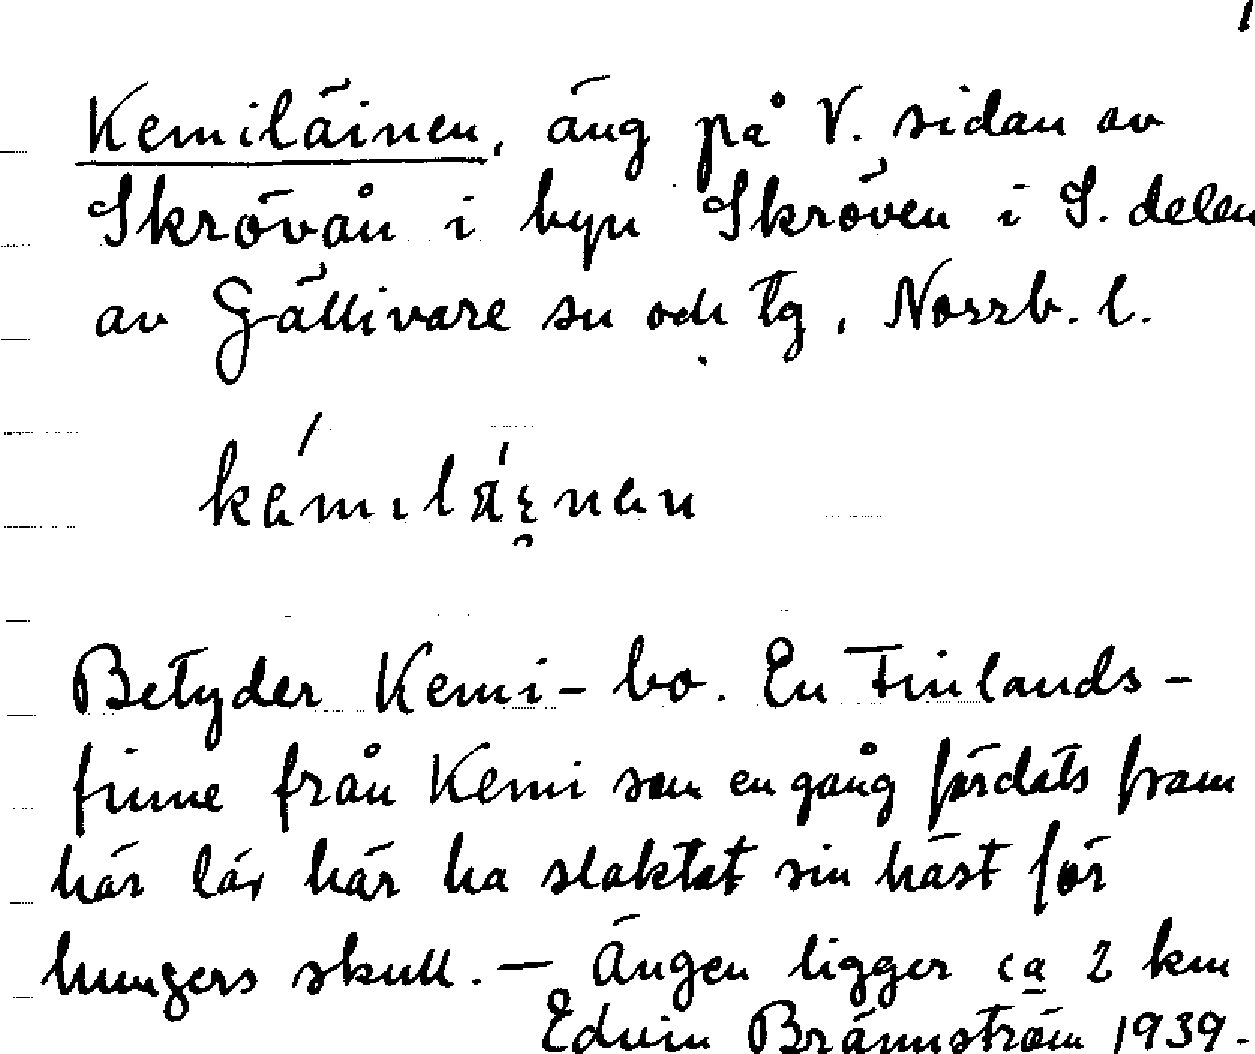 1
Kemiläinen, äng på V. sidan av
Skrövån i byn Skröven i S. delen
av Gällivare sn och tg, Norrb. l.
Betyder Kemi-bo. En Finlands-
finne från Kemi som en gång färdats fram
här lär här ha slaktat sin häst för
hungers skull. — Ängen ligger ca 2 km
Edvin Brännström 1939.